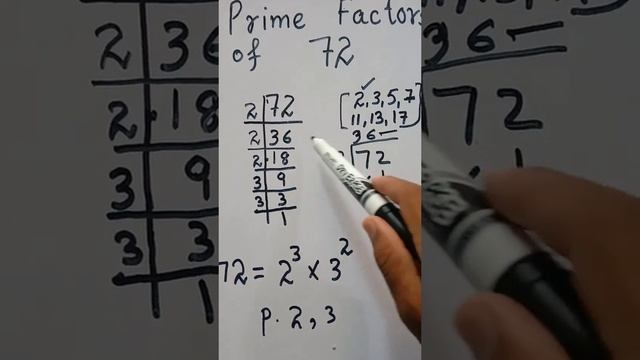 Prime Factors
of 72
2 72
2 36
2 18
3 9
3 3
1
[2, 3, 5, 7
11, 13, 17]
36
72
72 = 2³ × 3²
P. 2, 3